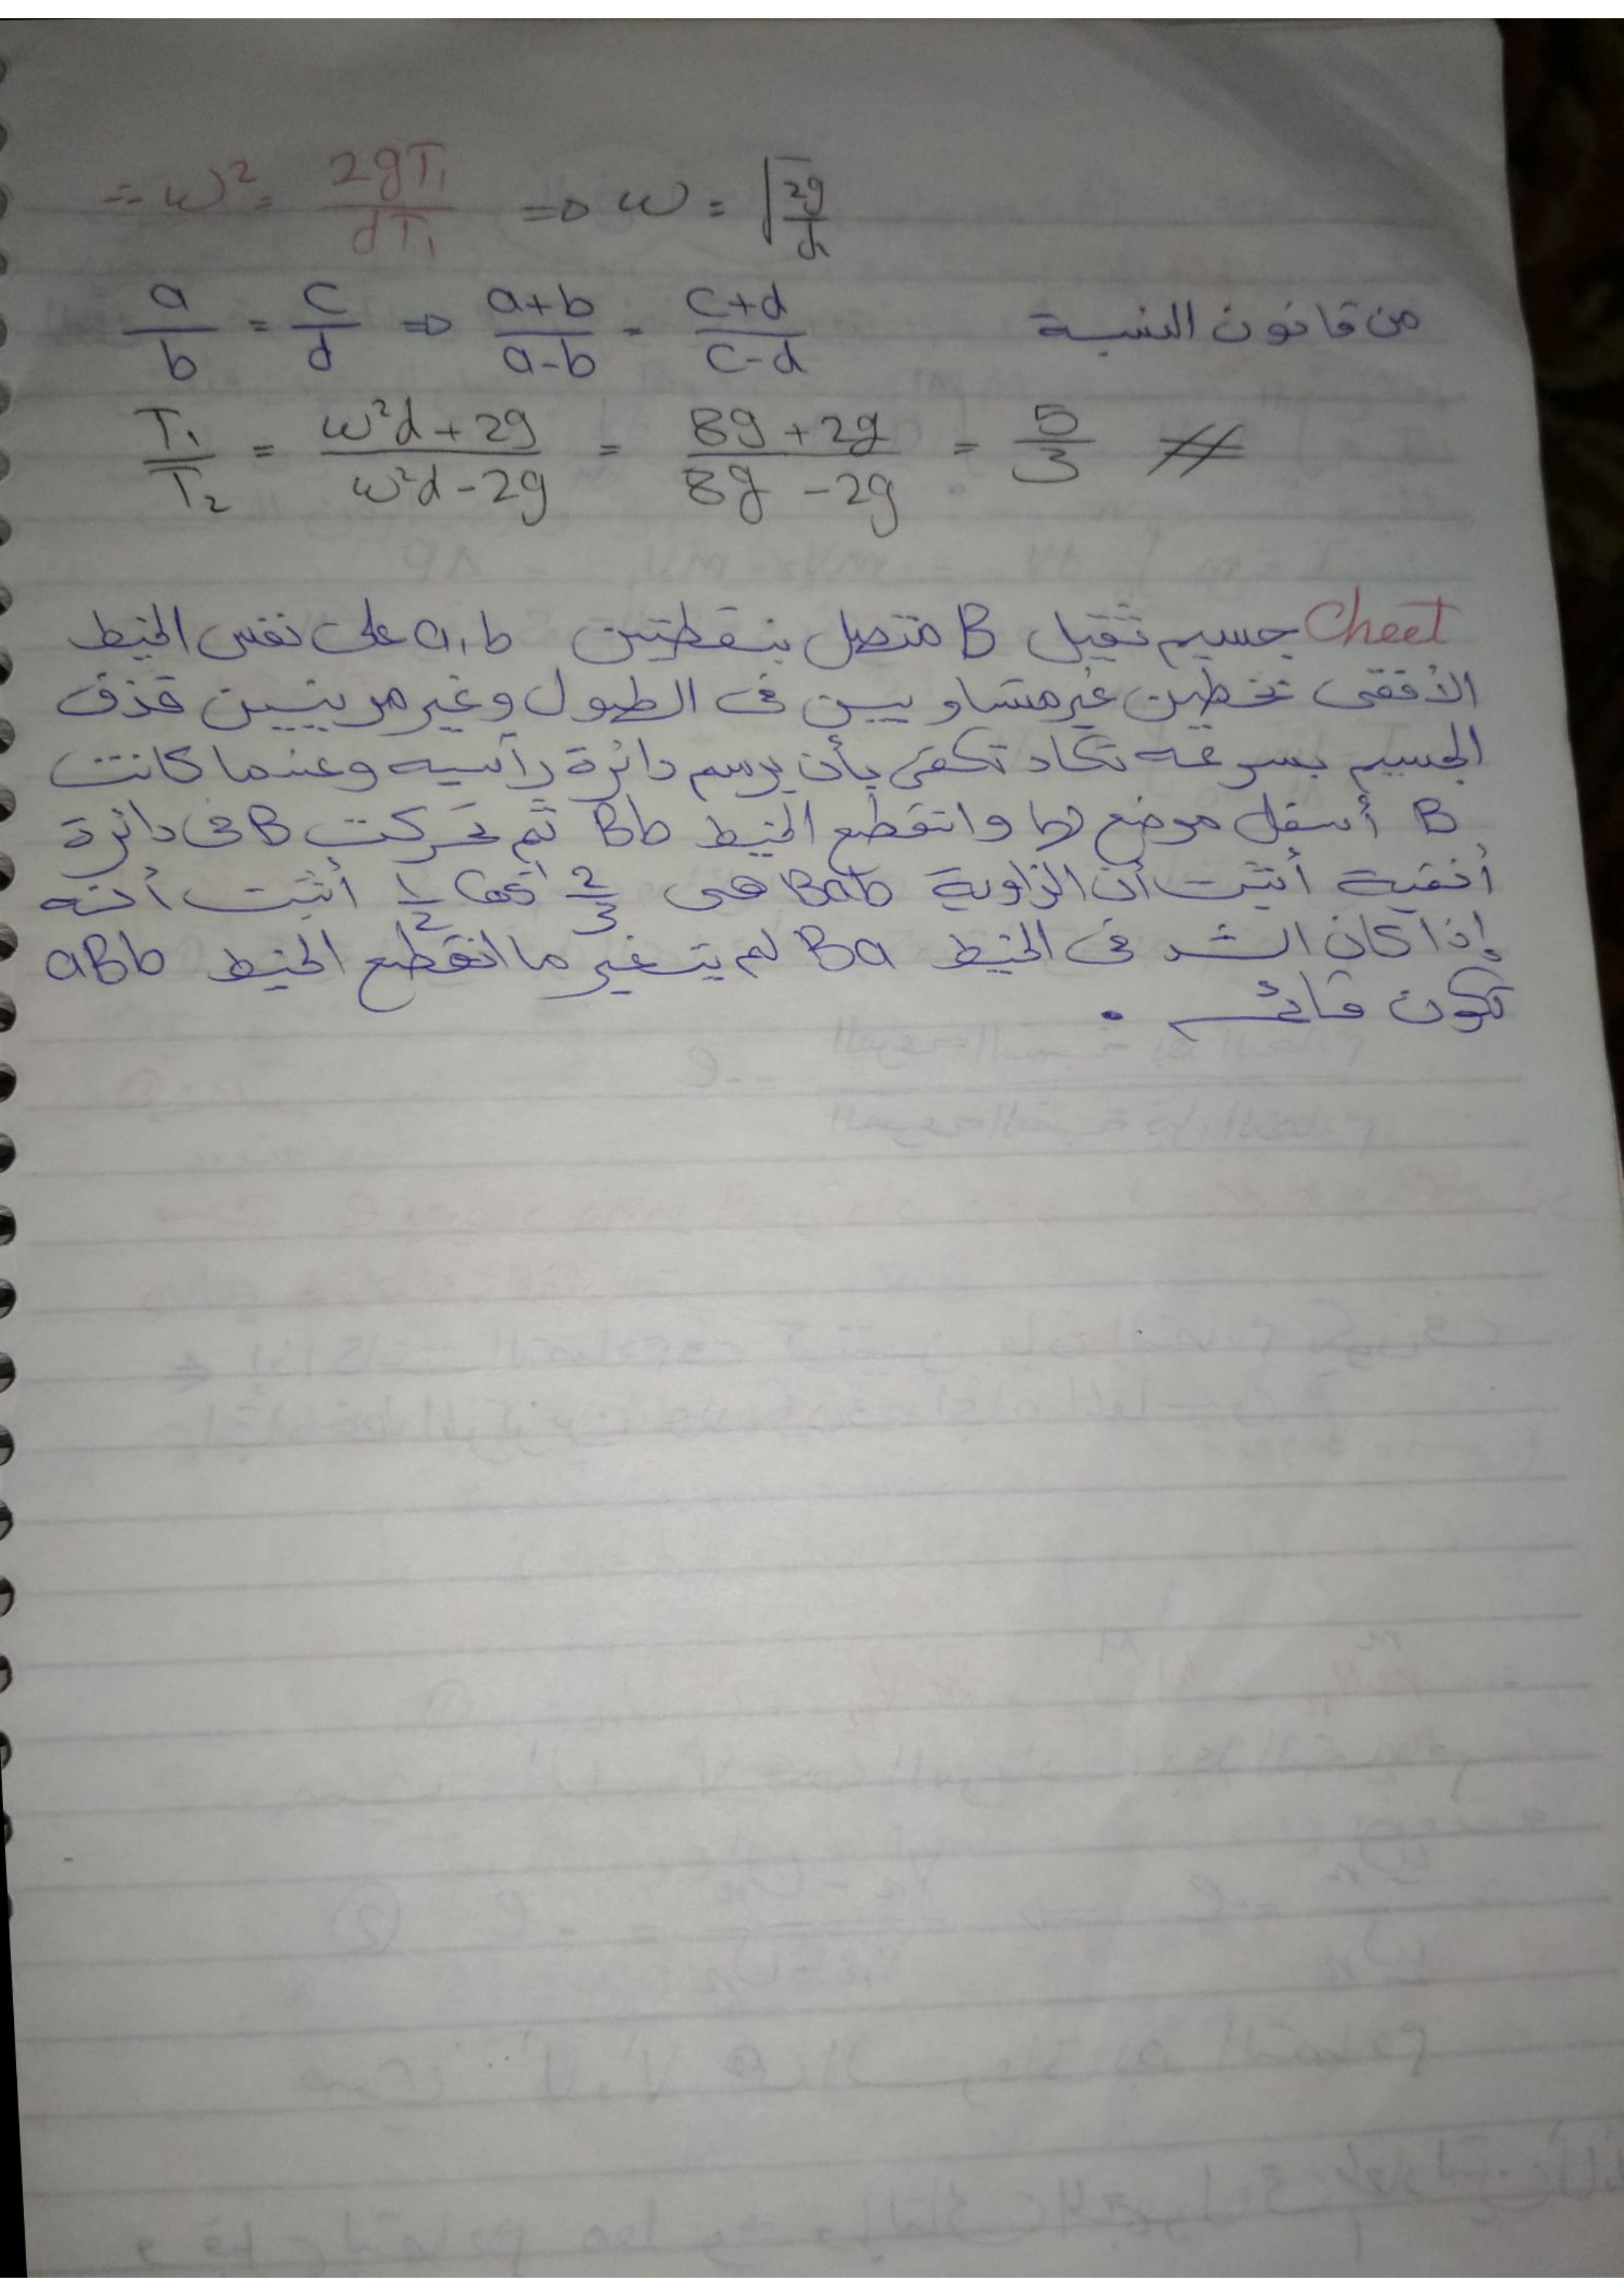 ∴ ω² = 2gT₁ / dT₁ ⇒ ω = √(2g/d)
من قانون النسبة a/b = c/d ⇒ (a+b)/(a-b) = (c+d)/(c-d)
T₁/T₂ = (ω²d + 2g)/(ω²d - 2g) = (8g + 2g)/(8g - 2g) = 5/3 #
Cheet جسيم ثقيل B متصل بنقطتين a, b على نفس الخيط
الأفقى بخطين غير متساويين فى الطول وغير مرينين قذف
الجسيم بسرعه تكاد تكفى بأن يرسم دائرة رآسيه وعندما كانت
B أسفل موضع لها وانقطع الخيط Bb ثم تحركت B فى دائرة
أفقية أثبت أن الزاوية Bab هى 2/3 cos⁻¹ 1/2 أثبت أنه
إذا كان الشد فى الخيط Ba لم يتغير ما انقطع الخيط aBb
تكون قائم .